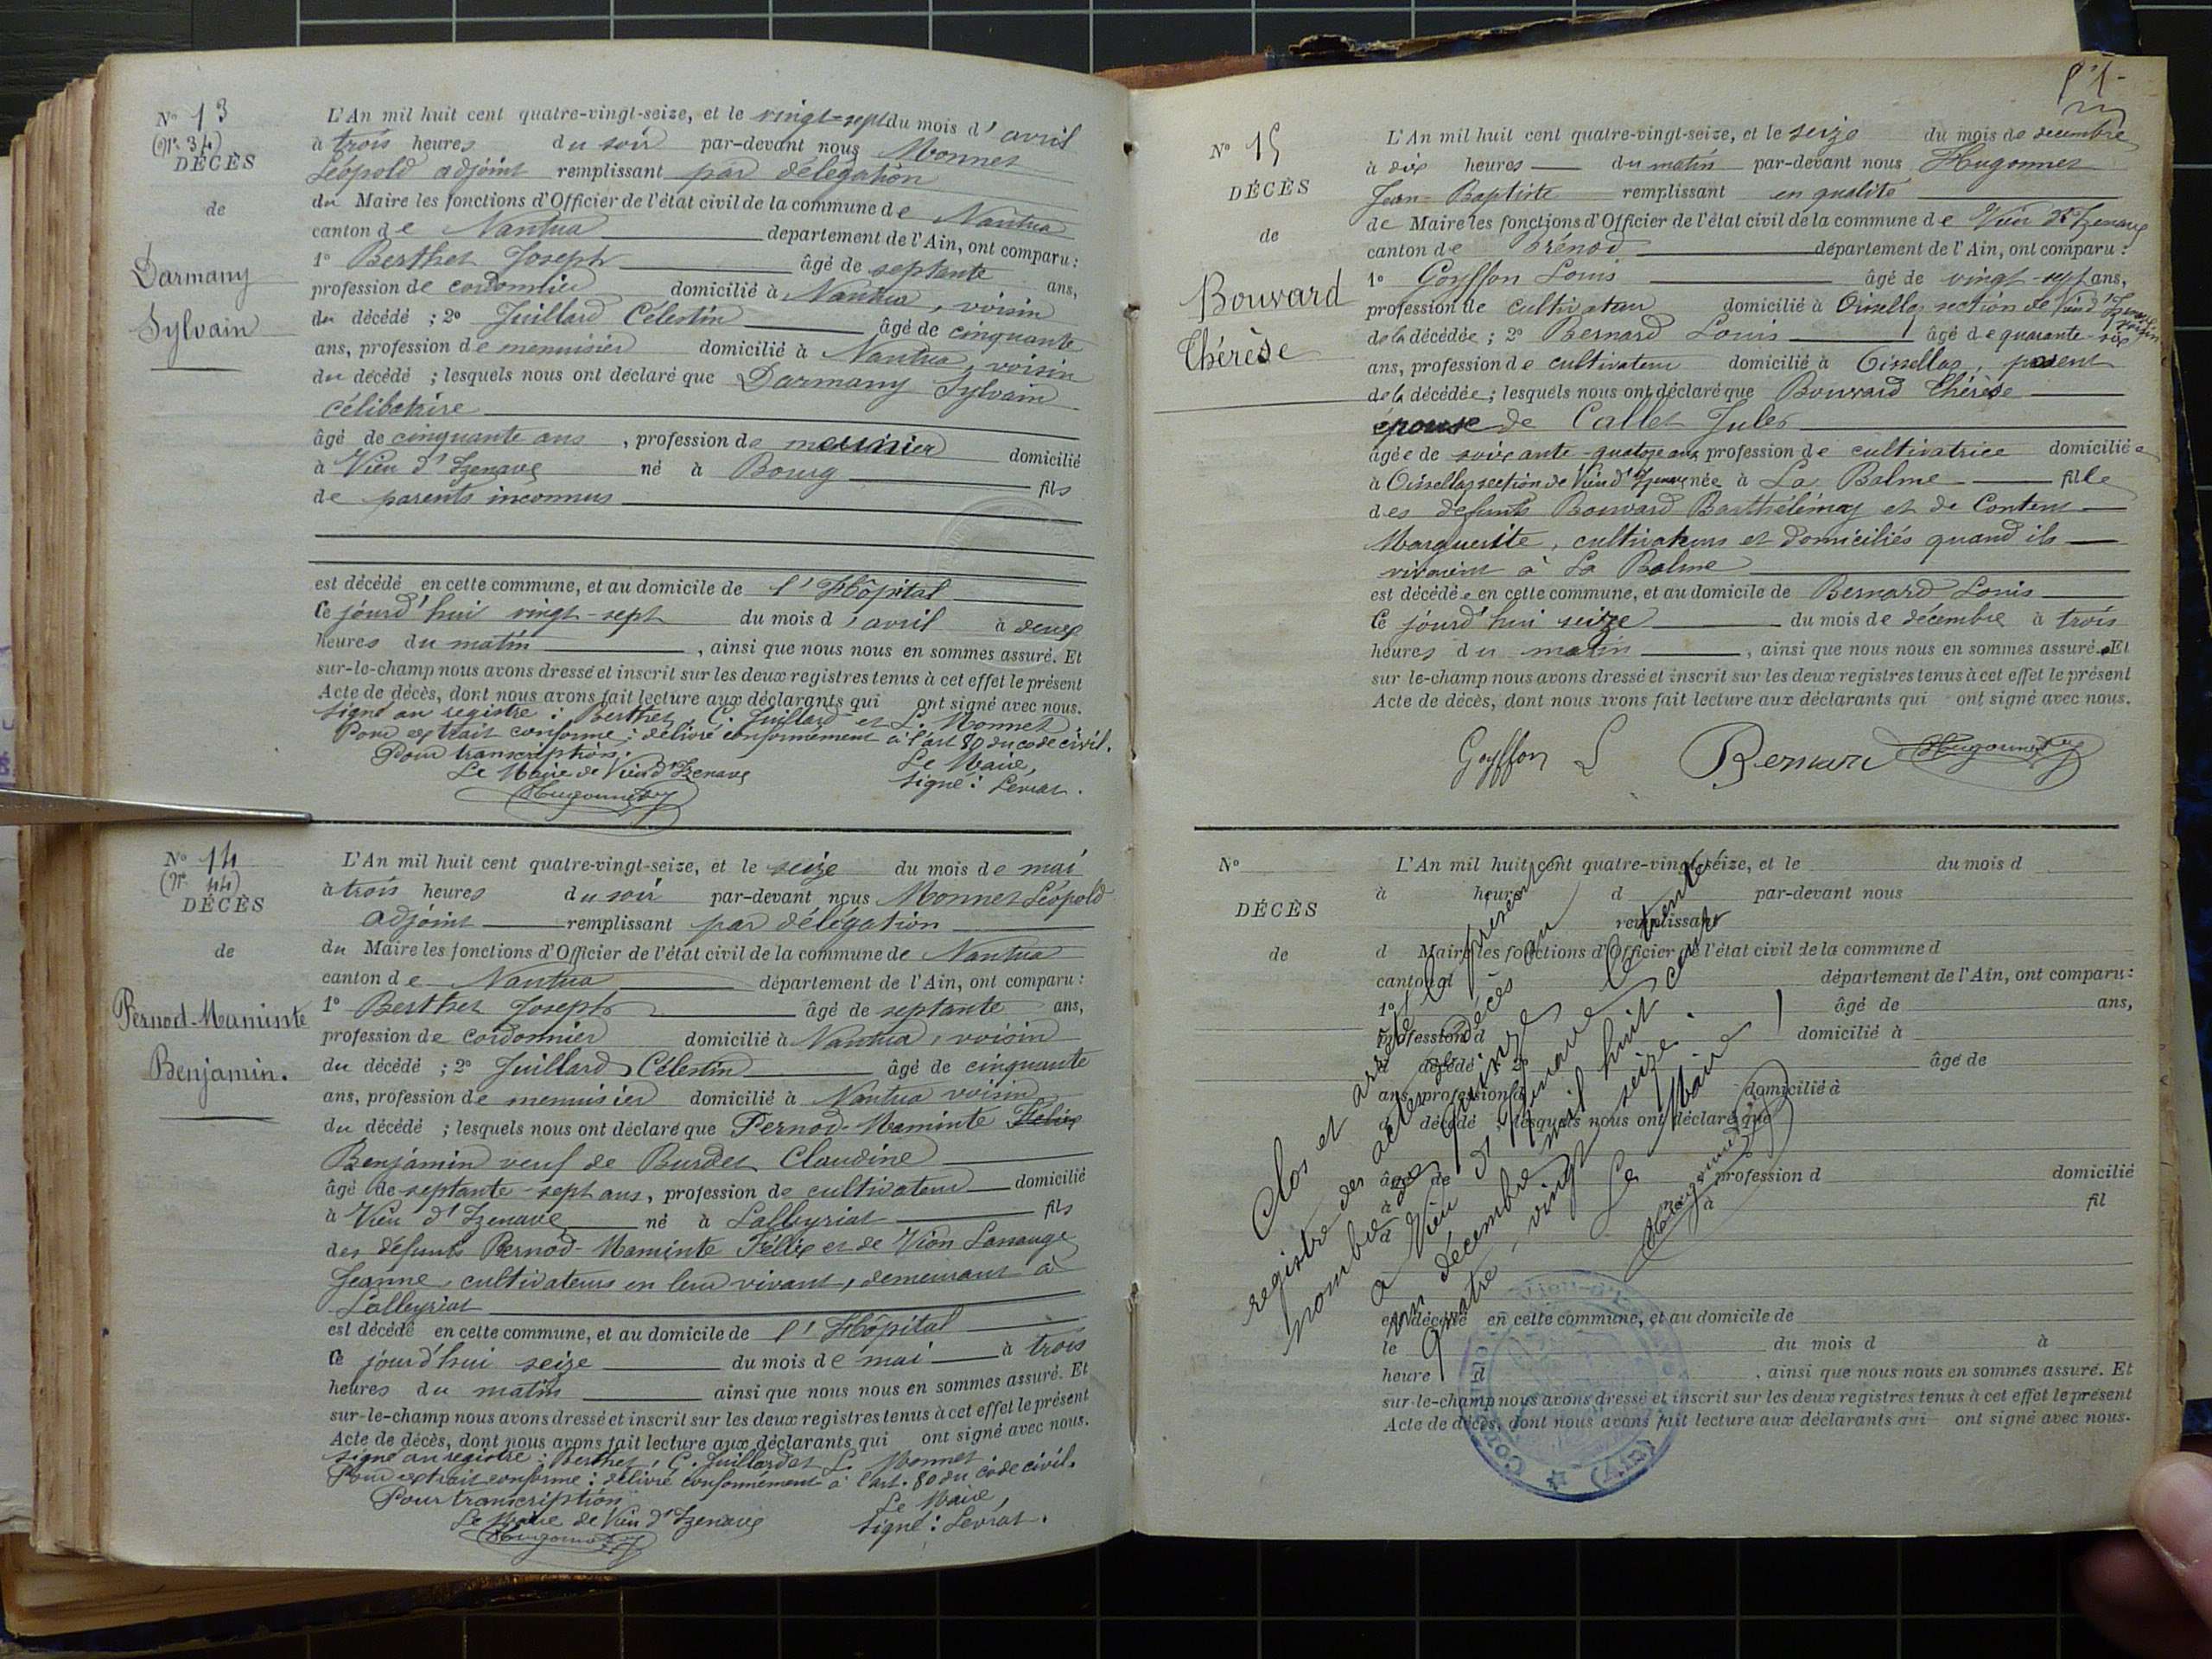 N° 13
(N° 34)
DÉCÈS
de
Darmany
Sylvain
L'An mil huit cent quatre-vingt-seize, et le vingt-sept du mois d'avril
à trois heures du soir par-devant nous Monnet
Léopold adjoint remplissant par délégation
du Maire les fonctions d'Officier de l'état civil de la commune de Nantua
canton de Nantua département de l'Ain, ont comparu :
1° Berthet Joseph âgé de septante ans,
profession de cordonnier domicilié à Nantua, voisin
du décédé ; 2° Juillard Célestin âgé de cinquante
ans, profession de menuisier domicilié à Nantua, voisin
du décédé ; lesquels nous ont déclaré que Darmany Sylvain
célibataire
âgé de cinquante ans, profession de meunier domicilié
à Vieu d'Izenave né à Bourg fils
de parents inconnus
est décédé en cette commune, et au domicile de l'Hôpital
Ce jourd'hui vingt-sept du mois d'avril à deux
heures du matin, ainsi que nous nous en sommes assuré. Et
sur-le-champ nous avons dressé et inscrit sur les deux registres tenus à cet effet le présent
Acte de décès, dont nous avons fait lecture aux déclarants qui ont signé avec nous.
Signé au registre : Berthet, C. Juillard et L. Monnet
Pour extrait conforme : délivré conformément à l'art 80 du code civil.
Pour transcription : Le Maire,
Le Maire de Vieu d'Izenave signé : Levrat.
Hugonnet
N° 14
(N° 44)
DÉCÈS
de
Pernod-Maminte
Benjamin.
L'An mil huit cent quatre-vingt-seize, et le seize du mois de mai
à trois heures du soir par-devant nous Monnet Léopold
adjoint remplissant par délégation
du Maire les fonctions d'Officier de l'état civil de la commune de Nantua
canton de Nantua département de l'Ain, ont comparu :
1° Berthet Joseph âgé de septante ans,
profession de cordonnier domicilié à Nantua, voisin
du décédé ; 2° Juillard Célestin âgé de cinquante
ans, profession de menuisier domicilié à Nantua voisin
du décédé ; lesquels nous ont déclaré que Pernod-Maminte Félix
Benjamin veuf de Burdet Claudine
âgé de septante-sept ans, profession de cultivateur domicilié
à Vieu d'Izenave né à Lalleyriat fils
des défunts Pernod-Maminte Félix et de Vion Lanauge
Jeanne, cultivateurs en leur vivant, demeurant à
Lalleyriat
est décédé en cette commune, et au domicile de l'Hôpital
Ce jourd'hui seize du mois de mai à trois
heures du matin ainsi que nous nous en sommes assuré. Et
sur-le-champ nous avons dressé et inscrit sur les deux registres tenus à cet effet le présent
Acte de décès, dont nous avons fait lecture aux déclarants qui ont signé avec nous.
Signé au registre : Berthet, C. Juillard et L. Monnet
Pour extrait conforme : délivré conformément à l'art. 80 du code civil.
Pour transcription Le Maire,
Le Maire de Vieu d'Izenave signé : Levrat.
Hugonnet
N° 15
DÉCÈS
de
Bouvard
Thérèse
L'An mil huit cent quatre-vingt-seize, et le seize du mois de décembre
à dix heures du matin par-devant nous Hugonnet
Jean-Baptiste remplissant en qualité
de Maire les fonctions d'Officier de l'état civil de la commune de Vieu d'Izenave
canton de Brénod département de l'Ain, ont comparu :
1° Goyffon Louis âgé de vingt-sept ans,
profession de cultivateur domicilié à Oisellaz section de Vieu d'Izenave voisin
de la décédée ; 2° Bernard Louis âgé de quarante-six
ans, profession de cultivateur domicilié à Oissellaz, parent
de la décédée ; lesquels nous ont déclaré que Bouvard Thérèse
épouse de Callet Jules
âgée de soixante-quatorze ans profession de cultivatrice domiciliée
à Oisellaz section de Vieu d'Izenave née à La Balme fille
des défunts Bouvard Barthélémy et de Content
Marguerite, cultivateurs et domiciliés quand ils
vivaient à La Balme
est décédée en cette commune, et au domicile de Bernard Louis
Ce jourd'hui seize du mois de décembre à trois
heures du matin, ainsi que nous nous en sommes assuré. Et
sur-le-champ nous avons dressé et inscrit sur les deux registres tenus à cet effet le présent
Acte de décès, dont nous avons fait lecture aux déclarants qui ont signé avec nous.
Goyffon L Bernard Hugonnet
N°
DÉCÈS
de
L'An mil huit cent quatre-vingt-seize, et le du mois d
à heure d par-devant nous
remplissant
d Maire les fonctions d'Officier de l'état civil de la commune d
canton d département de l'Ain, ont comparu :
1° âgé de ans,
profession d domicilié à
d décédé ; 2° âgé de
ans, profession d domicilié à
d décédé ; lesquels nous ont déclaré que
âgé de profession d domicilié
à né à fil
d
est décédé en cette commune, et au domicile de
le du mois d à
heure d , ainsi que nous nous en sommes assuré. Et
sur-le-champ nous avons dressé et inscrit sur les deux registres tenus à cet effet le présent
Acte de décès, dont nous avons fait lecture aux déclarants qui ont signé avec nous.
Clos et arrêté le présent
registre des actes de décès au
nombre de quinze
à Vieu d'Izenave le trente
un décembre mil huit cent
quatre-vingt seize.
Le Maire
Hugonnet